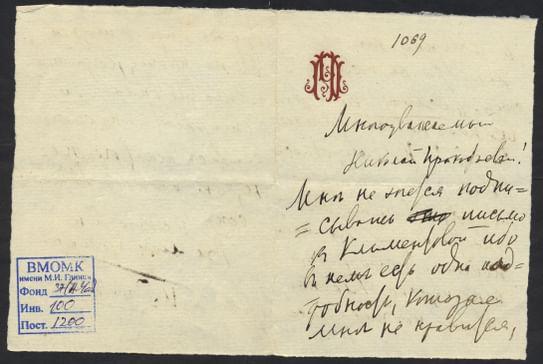 1069
Многоуважаемый
Николай Прокофьевич!
Мне не хочется подпи-
=сывать письмо
Климентовой ибо
въ немъ есть одна под=
робность, которая
мне не нравится,
ВМОМК
имени М.И. Глинки
Фонд
Инв. 100
Пост. 1200